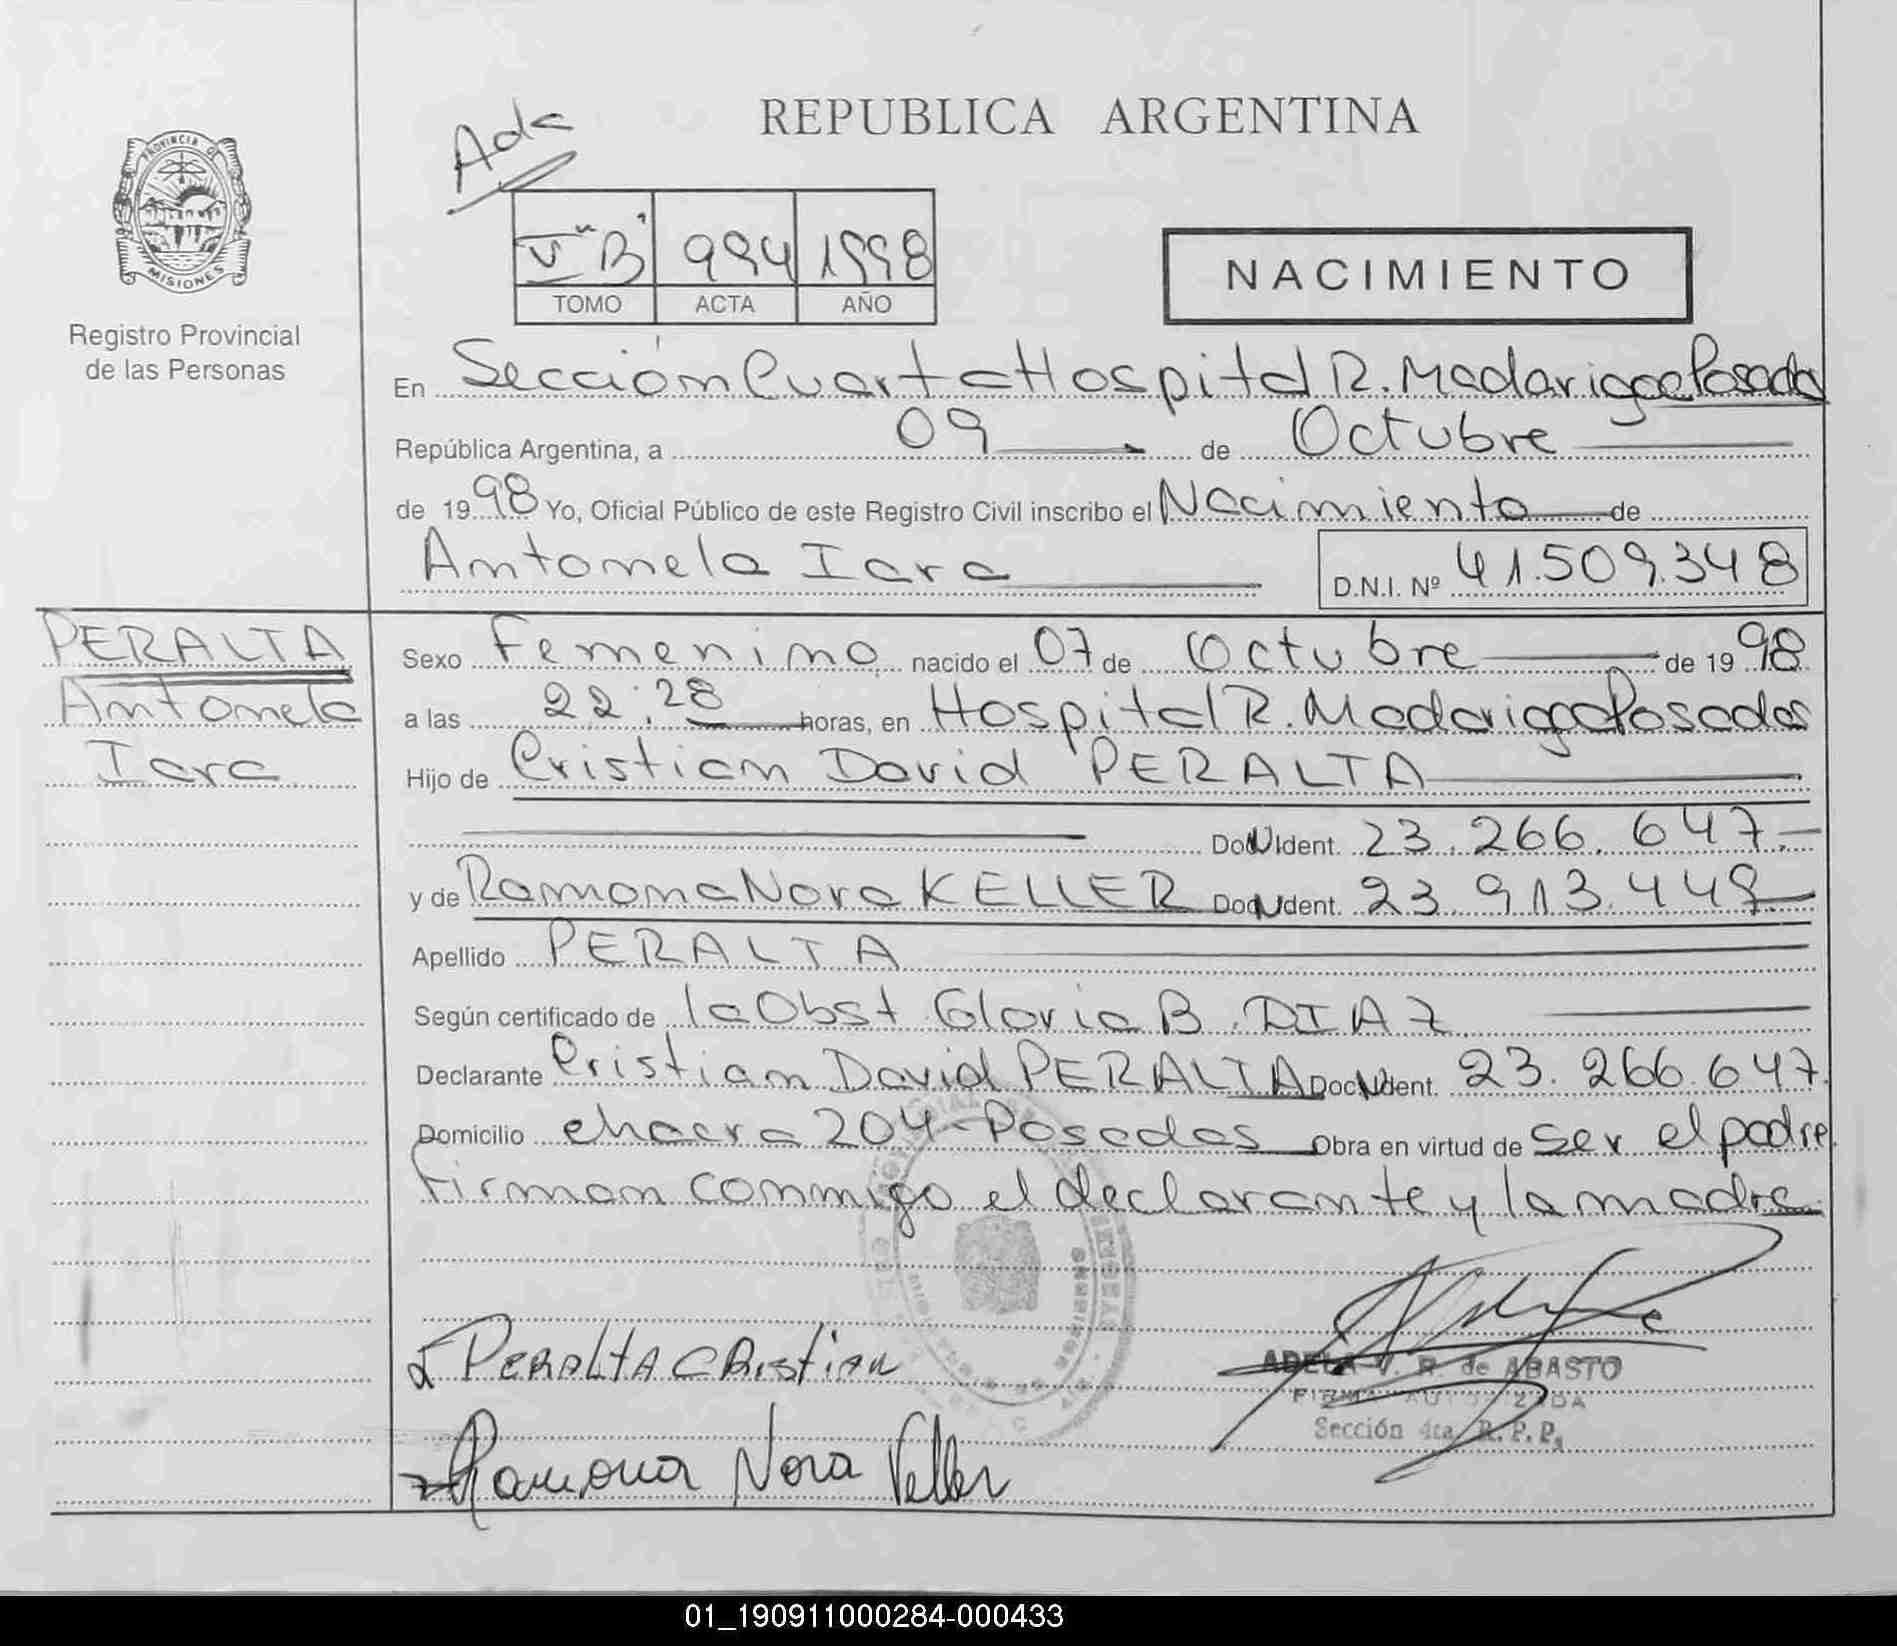 REPUBLICA ARGENTINA
Ada
PROVINCIA DE
MISIONES
Registro Provincial
de las Personas
V "B" 994 1998
TOMO ACTA AÑO
NACIMIENTO
En Sección Cuarta Hospital R. Madariaga Posadas
República Argentina, a 09 de Octubre
de 1998 Yo, Oficial Público de este Registro Civil inscribo el Nacimiento de
Antonela Iara D.N.I. Nº 41.509.348
PERALTA
Antonela
Iara
Sexo Femenino nacido el 07 de Octubre de 1998
a las 22:28 horas, en Hospital R. Madariaga Posadas
Hijo de Cristian David PERALTA
Doc N Ident. 23.266.647.-
y de Ramona Nora KELLER Doc N Ident. 23.913.449
Apellido PERALTA
Según certificado de la Obst Gloria B. DIAZ
Declarante Cristian David PERALTA Doc N Ident. 23.266.647.
Domicilio chacra 204 - Posadas Obra en virtud de ser el padre.
Firman conmigo el declarante y la madre.
PERALTA CRistian
ADELA V. R. de ABASTO
FIRMA AUTORIZADA
Sección 4ta. R. P. P.
Ramona Nora Keller
01_190911000284-000433